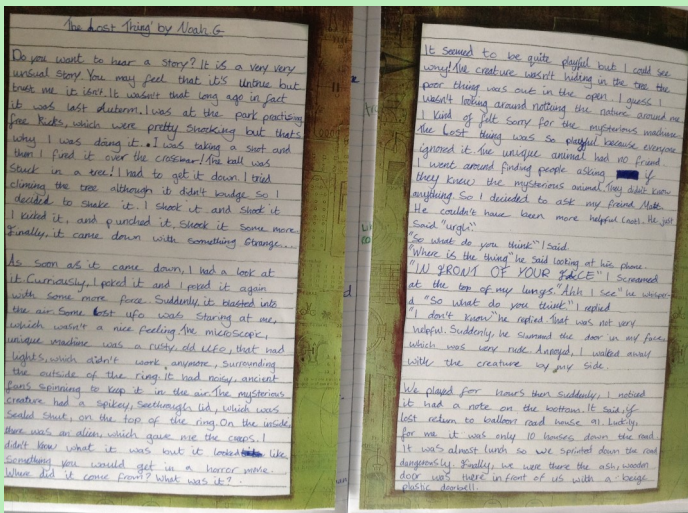 'The Lost Thing' by Noah.G
Do you want to hear a story? It is a very very
unsual story. You may feel that it's untrue but
trust me it isn't. It wasn't that long ago in fact
it was last Auterm. I was at the park practising
free kicks, which were pretty shocking but thats
why I was doing it. I was taking a shot and
then I fired it over the crossbar! The ball was
stuck in a tree! I had to get it down. I tried
climing the tree although it didn't budge so I
decided to shake it. I shook it and shook it
I kicked it, and punched it, shook it some more.
Finally, it came down with something strange....
As soon as it came down, I had a look at
it. Curriously, I poked it and I poked it again
with some more force. Suddenly, it blasted into
the air. Some lost ufo was staring at me,
which wasn't a nice feeling. The microscopic,
unique machine was a rusty, old UFO, that had
lights, which didn't work anymore, surrounding
the outside of the ring. It had noisy, ancient
fans spinning to keep it in the air. The mysterious
creature had a spikey, seethrough lid, which was
sealed shut, on the top of the ring. On the inside,
there was an alien, which gave me the creeps. I
didn't know what it was but it looked like
something you would get in a horror movie.
Where did it come from? What was it?
It seemed to be quite playful but I could see
why! The creature wasn't hiding in the tree the
poor thing was out in the open. I guess I
wasn't looking around noticing the nature around me
I kind of felt sorry for the mysterious machine.
The lost thing was so playful because everyone
ignored it. The unique animal had no friend
I went around finding people asking if
they knew the mysterious animal. They didn't know
anything. So I decided to ask my freind Matt.
He couldn't have been more helpful (not). He just
said "urgh".
"So what do you think" I said.
"Where is the thing" he said looking at his phone.
"IN FRONT OF YOUR FACE" I screamed
at the top of my lungs. "Ahh I see" he whisper-
d "So what do you think" I replied
"I don't know" he replied that was not very
helpful. Suddenly, he slammed the door in my face
which was very rude. Annoyed, I walked away
with the creature by my side.
We played for hours then suddenly, I noticed
it had a note on the bottom. It said, if
lost return to balloon road house 21. Luckily,
for me it was only 10 houses down the road.
It was almost lunch so we sprinted down the road
dangerously. Finally, we were there the ash, wooden
door was there in front of us with a beige
plastic doorbell.